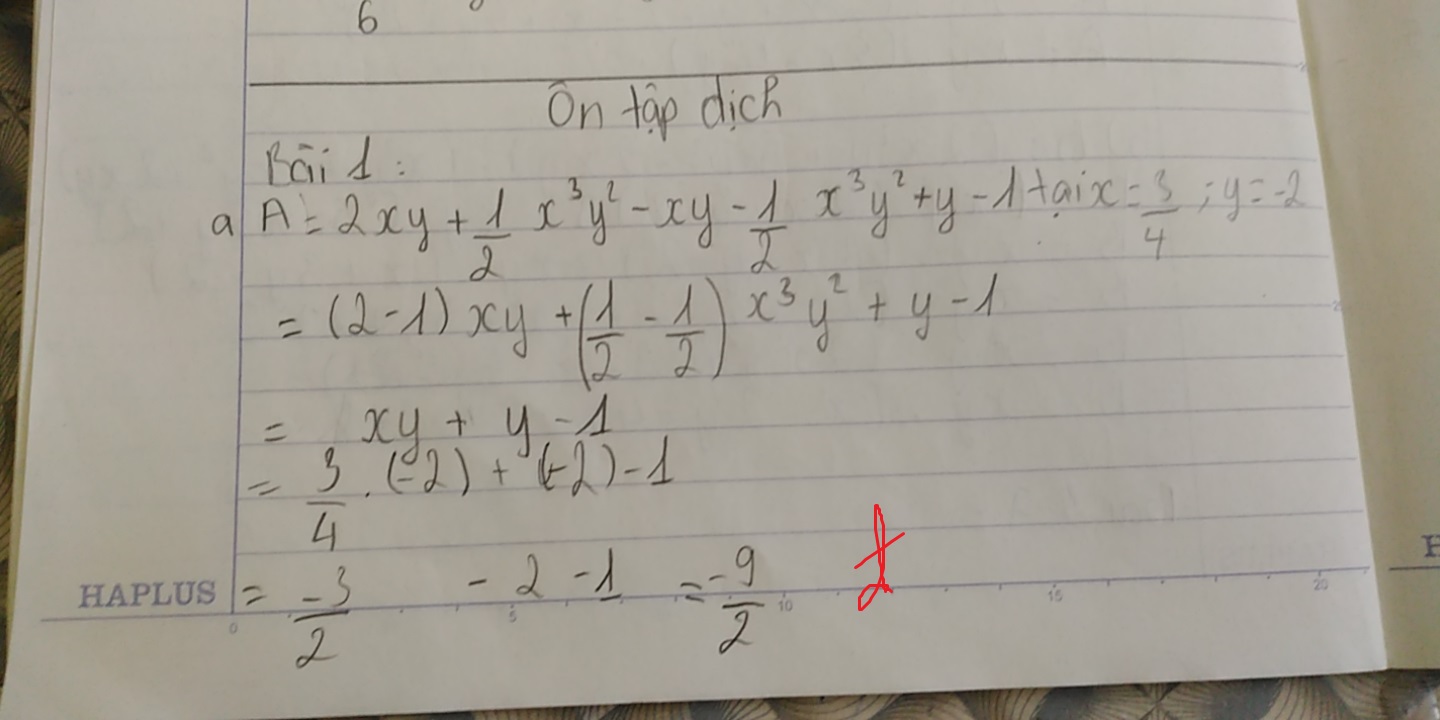 6
Ôn tập dịch
Bài 1:
a A = 2xy + 1/2 x³y² - xy - 1/2 x³y² + y - 1 tại x = 3/4 ; y = -2
= (2-1) xy + (1/2 - 1/2) x³y² + y - 1
= xy + y - 1
= 3/4 . (-2) + (-2) - 1
HAPLUS = -3/2 - 2 - 1 = -9/2
0 5 10 15 20